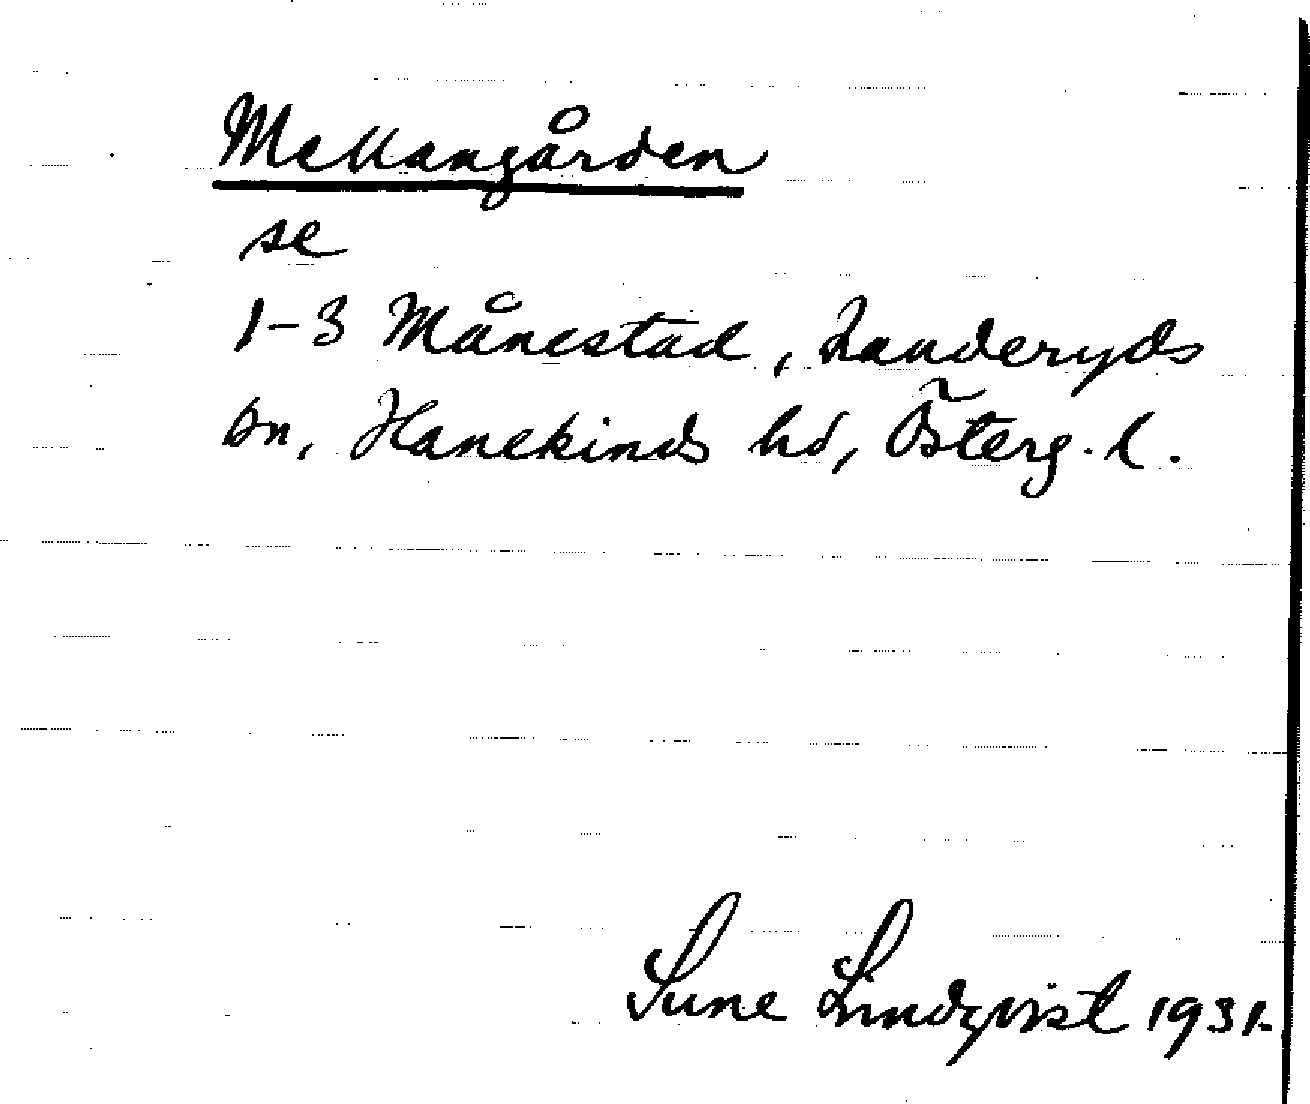 Mellangården
se
1-3 Månestad, Landeryds
sn, Hanekinds hd, Österg. l.
Sune Lindqvist 1931.